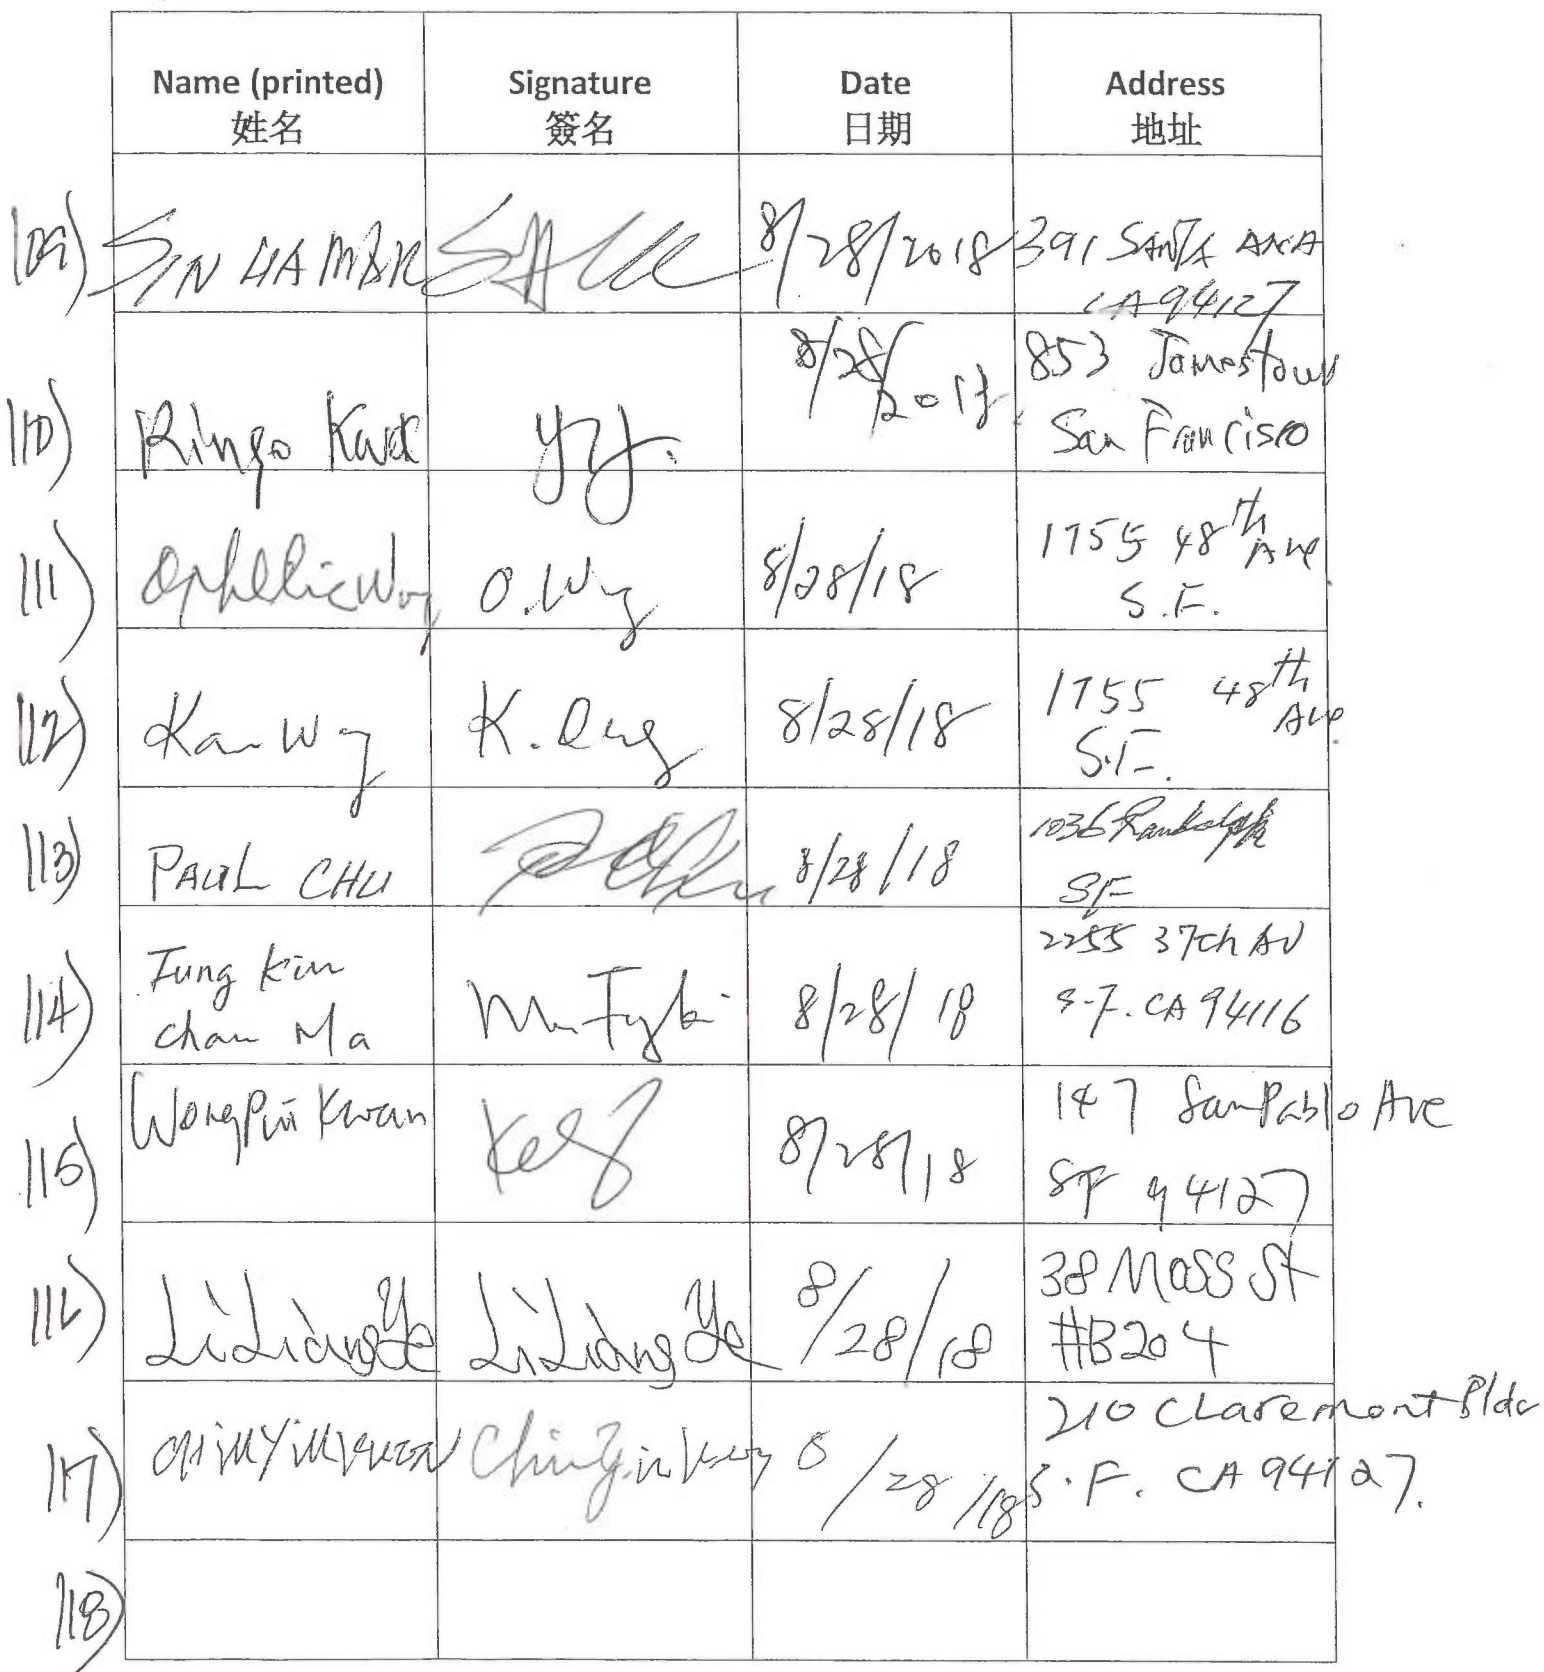 Name (printed) Signature Date Address
姓名 簽名 日期 地址
109) SIN HA MAK 8/28/2018 391 SANTA ANA
CA 94127
110) Ringo Kwok 8/28/2018 853 Jamestown
San Francisco
111) Ophelia Wong O. Wong 8/28/18 1755 48th Ave
S.F.
112) Kan Wong K. 8/28/18 1755 48th Ave
S.F.
113) PAUL CHU P Chu 8/28/18 1036 Randolph
SF
114) Fung Kin 8/28/18 2255 37th AV
Chan Ma S.F. CA 94116
115) Wong Pui Kwan 8/28/18 147 San Pablo Ave
SF 94127
116) LiLiangYe LiLiangYe 8/28/18 38 MOSS St
#B204
117) 8/28/18 210 Claremont Bldv
S.F. CA 94127.
118)